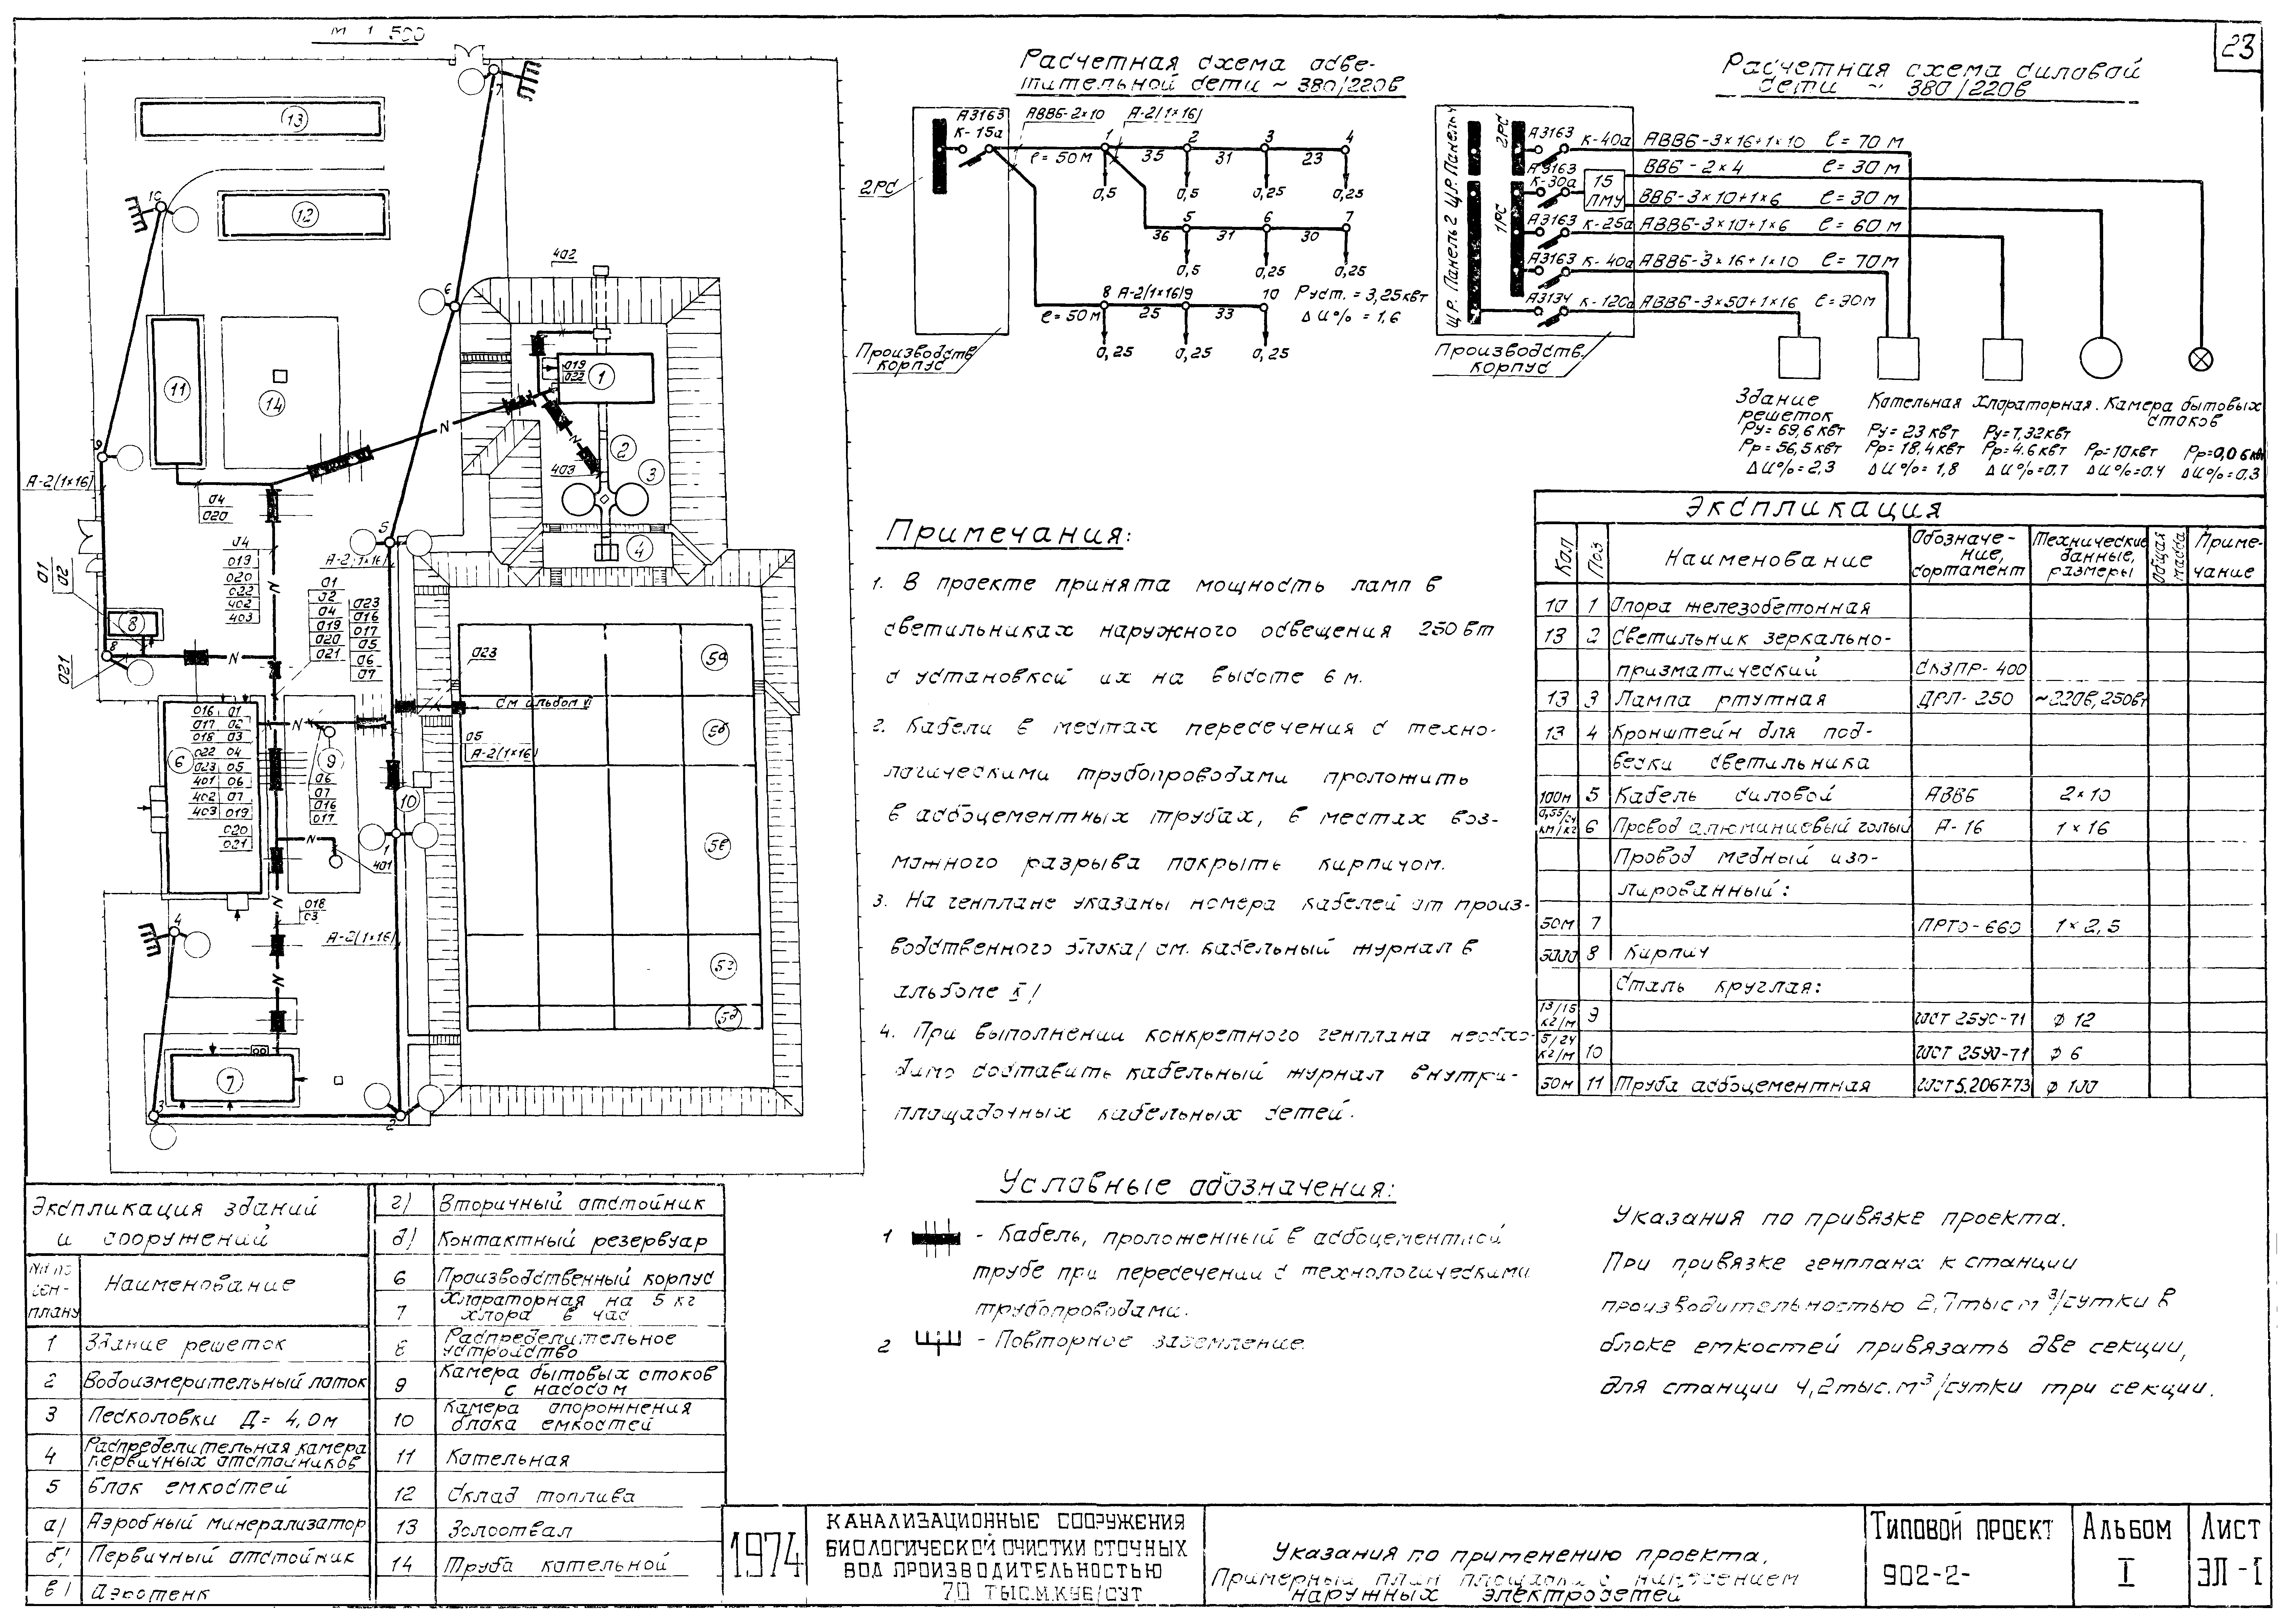 23
М 1 500
Расчетная схема осве-
тительной сети ~ 380/220в
2РС
А3163
К-15а
АВВБ-2×10
А-2(1×16)
ℓ=50м
1
2
3
4
35
31
23
0,5
0,5
0,25
0,25
5
6
7
36
31
30
0,5
0,25
0,25
8
А-2(1×16)
9
10
ℓ=50м
25
33
0,25
0,25
0,25
Руст. = 3,25квт
ΔU% = 1,6
Производств.
корпус
Расчетная схема силовой
сети ~ 380/220в
Щ.Р. Панель 2 Щ.Р. Панель 4
2РС
1РС
А3163 К-40а АВВБ-3×16+1×10 ℓ=70м
А3163 К-30а
15
ПМУ
ВВБ-2×4 ℓ=30м
ВВБ-3×10+1×6 ℓ=30м
А3163 К-25а АВВБ-3×10+1×6 ℓ=60м
А3163 К-40а АВВБ-3×16+1×10 ℓ=70м
А3134 К-120а АВВБ-3×50+1×16 ℓ=30м
Производств.
корпус
Здание
решеток
Ру=69,6квт
Рр=56,5квт
ΔU%=2,3
Котельная
Ру=23квт
Рр=18,4квт
ΔU%=1,8
Хлораторная.
Ру=7,32квт
Рр=4.6квт
ΔU%=0.7
Камера бытовых
стоков
Рр=10квт
ΔU%=0.4
Рр=0,06квт
ΔU%=0,3
13
12
11
14
1
2
3
4
5а
5б
5в
5г
5д
6
7
8
9
10
402
019
022
403
04
020
А-2(1×16)
01
02
021
04
019
020
022
402
403
01
02
04
019
020
021
023
016
017
05
06
07
А-2(1×16)
023
см альбом VI
05
А-2(1×16)
016 01
017 02
018 03
022 04
023 05
401 06
402 07
403 019
020
021
06
07
016
017
401
018
03
А-2(1×16)
Примечания:
1. В проекте принята мощность ламп в
светильниках наружного освещения 250вт
с установкой их на высоте 6м.
2. Кабели в местах пересечения с техно-
логическими трубопроводами проложить
в асбоцементных трубах, в местах воз-
можного разрыва покрыть кирпичом.
3. На генплане указаны номера кабелей от произ-
водственного блока/ см. кабельный журнал в
альбоме X/
4. При выполнении конкретного генплана необхо-
димо составить кабельный журнал внутри-
площадочных кабельных сетей.
Экспликация
Кол
Поз
Наименование
Обозначе-
ние,
сортамент
Технические
данные,
размеры
Общая
масса
Приме-
чание
10 1 Опора железобетонная
13 2 Светильник зеркально-
призматический СКЗПР-400
13 3 Лампа ртутная ДРЛ-250 ~220в, 250вт
13 4 Кронштейн для под-
вески светильника
100м 5 Кабель силовой АВВБ 2×10
0,55/24
км/кг 6 Провод алюминиевый голый А-16 1×16
Провод медный изо-
лированный:
50м 7 ПРТО-660 1×2,5
5000 8 Кирпич
Сталь круглая:
13/15
кг/м 9 ГОСТ 2590-71 Ф 12
5/24
кг/м 10 ГОСТ 2590-71 Ф 6
50м 11 Труба асбоцементная ГОСТ 5.2067-73 Ф 100
Условные обозначения:
1 - Кабель, проложенный в асбоцементной
трубе при пересечении с технологическими
трубопроводами.
2 - Повторное заземление.
Указания по привязке проекта.
При привязке генплана к станции
производительностью 2,7тыс м³/сутки в
блоке емкостей привязать две секции,
для станции 4,2тыс.м³/сутки три секции.
Экспликация зданий
и сооружений
№№ по
ген-
плану
Наименование
1 Здание решеток
2 Водоизмерительный лоток
3 Песколовки Д= 4,0м
4 Распределительная камера
первичных отстойников
5 Блок емкостей
а) Аэробный минерализатор
б) Первичный отстойник
в) Аэротенк
г) Вторичный отстойник
д) Контактный резервуар
6 Производственный корпус
7 Хлораторная на 5 кг
хлора в час
8 Распределительное
устройство
9 Камера бытовых стоков
с насосом
10 Камера опорожнения
блока емкостей
11 Котельная
12 Склад топлива
13 Золоотвал
14 Труба котельной
1974
КАНАЛИЗАЦИОННЫЕ СООРУЖЕНИЯ
БИОЛОГИЧЕСКОЙ ОЧИСТКИ СТОЧНЫХ
ВОД ПРОИЗВОДИТЕЛЬНОСТЬЮ
7,0 ТЫС.М.КУБ/СУТ
Указания по применению проекта.
Примерный план площадки с нанесением
наружных электросетей
ТИПОВОЙ ПРОЕКТ
902-2-
АЛЬБОМ
I
ЛИСТ
ЭЛ-1